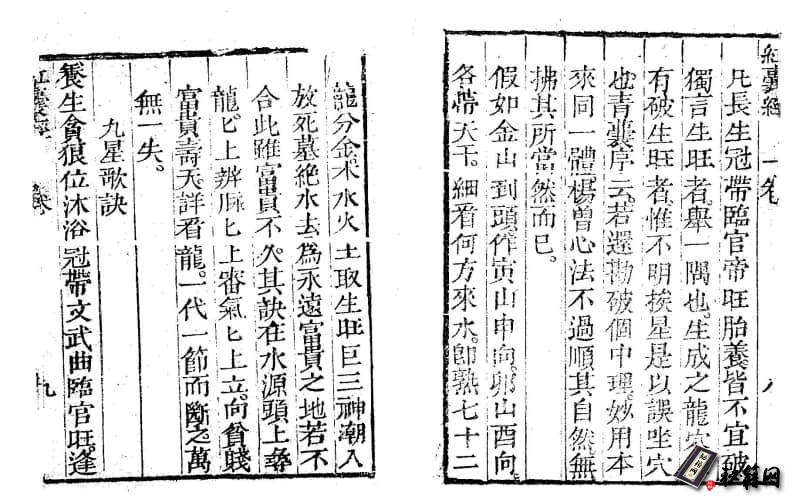 紅囊經 一卷 八
凡長生冠帶臨官帝旺胎養皆不宜破
獨言生旺者。舉一隅也。生成之龍穴
有破生旺者。惟不明挨星是以誤坐穴
也。青囊序云。若還勘破個中理。妙用本
來同一體。楊曾心法不過順其自然。無
拂其所當然而已。
假如金山到頭。作寅山申向。卯山酉向。
各帶天干。細看何方來水。卽熟七十二
龍分金。木水火土取生旺巨三神潮入
放死墓絕水去。為永遠富貴之地。若不
合此。雖富貴不久。其訣在水源頭上尋
龍匕上辨脈匕上審氣匕上立。向貧賤
富貴壽夭。詳看龍。一代一節而斷之。萬
無一失。
九星歌訣
養生貪狼位沐浴冠帶文武曲臨官旺逢
九
秘籍网